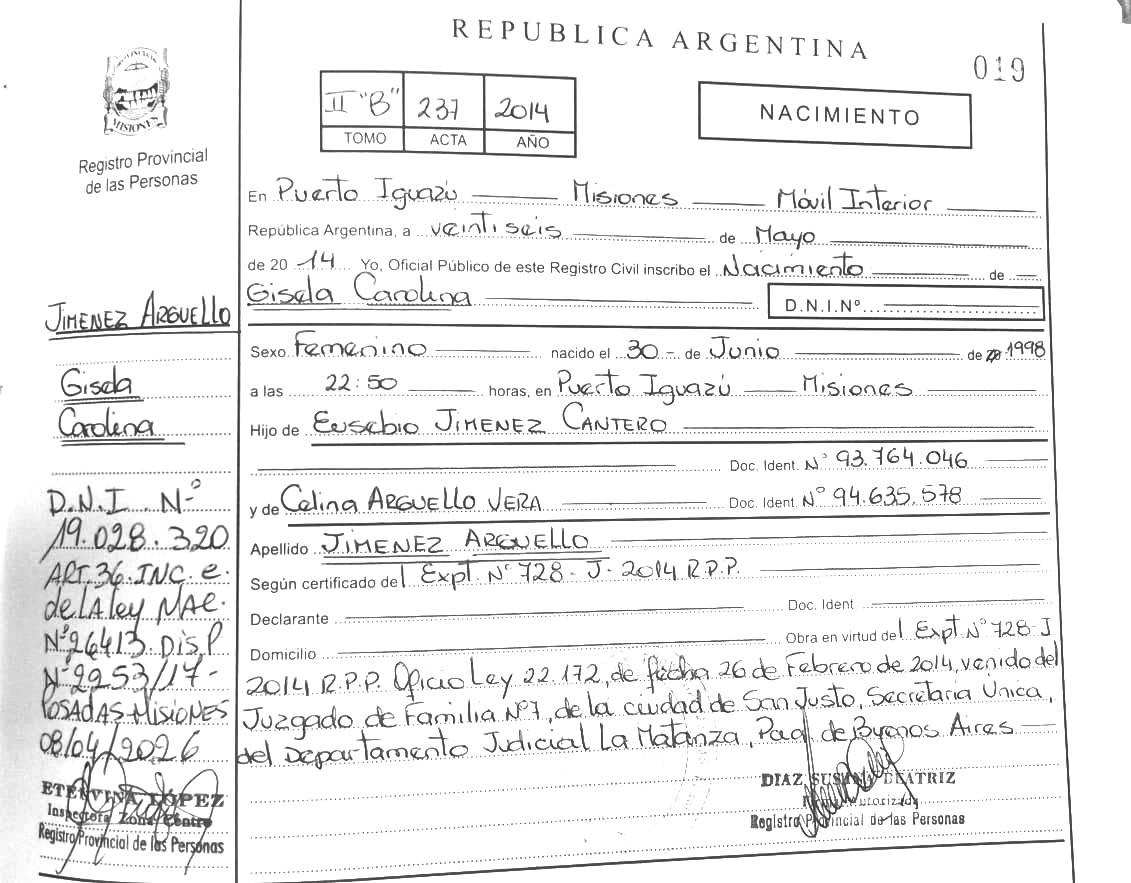 REPUBLICA ARGENTINA
019
II "B" 237 2014
TOMO ACTA AÑO
NACIMIENTO
MISIONES
Registro Provincial
de las Personas
En Puerto Iguazú Misiones Móvil Interior
República Argentina, a veintiseis de Mayo
de 20 14 Yo, Oficial Público de este Registro Civil inscribo el Nacimiento de
Gisela Carolina
D.N.I.Nº
Sexo Femenino nacido el 30 - de Junio de 1998
a las 22:50 horas, en Puerto Iguazú Misiones
Hijo de Eusebio JIMENEZ CANTERO
Doc. Ident. Nº 93.764.046
y de Celina ARGUELLO VERA Doc. Ident. Nº 94.635.578
Apellido JIMENEZ ARGUELLO
Según certificado del Expt. Nº 728 - J - 2014 R.P.P.
Declarante Doc. Ident
Domicilio Obra en virtud del Expt Nº 728-J
2014 R.P.P. Oficio Ley 22.172, de fecha 26 de Febrero de 2014, venido del
Juzgado de Familia Nº7, de la ciudad de San Justo, Secretaria Única,
del Departamento Judicial La Matanza, de Buenos Aires
DIAZ SUSANA BEATRIZ
Registro Provincial de las Personas
JIMENEZ ARGUELLO
Gisela
Carolina
D.N.I Nº
19.028.320
ART.36.INC.e.
de LA ley NAC.
Nº26413.DISP
Nº2253/17-
POSADAS MISIONES
08/04/2026
ETELVINA LÓPEZ
Inspectora Zona Centro
Registro Provincial de las Personas